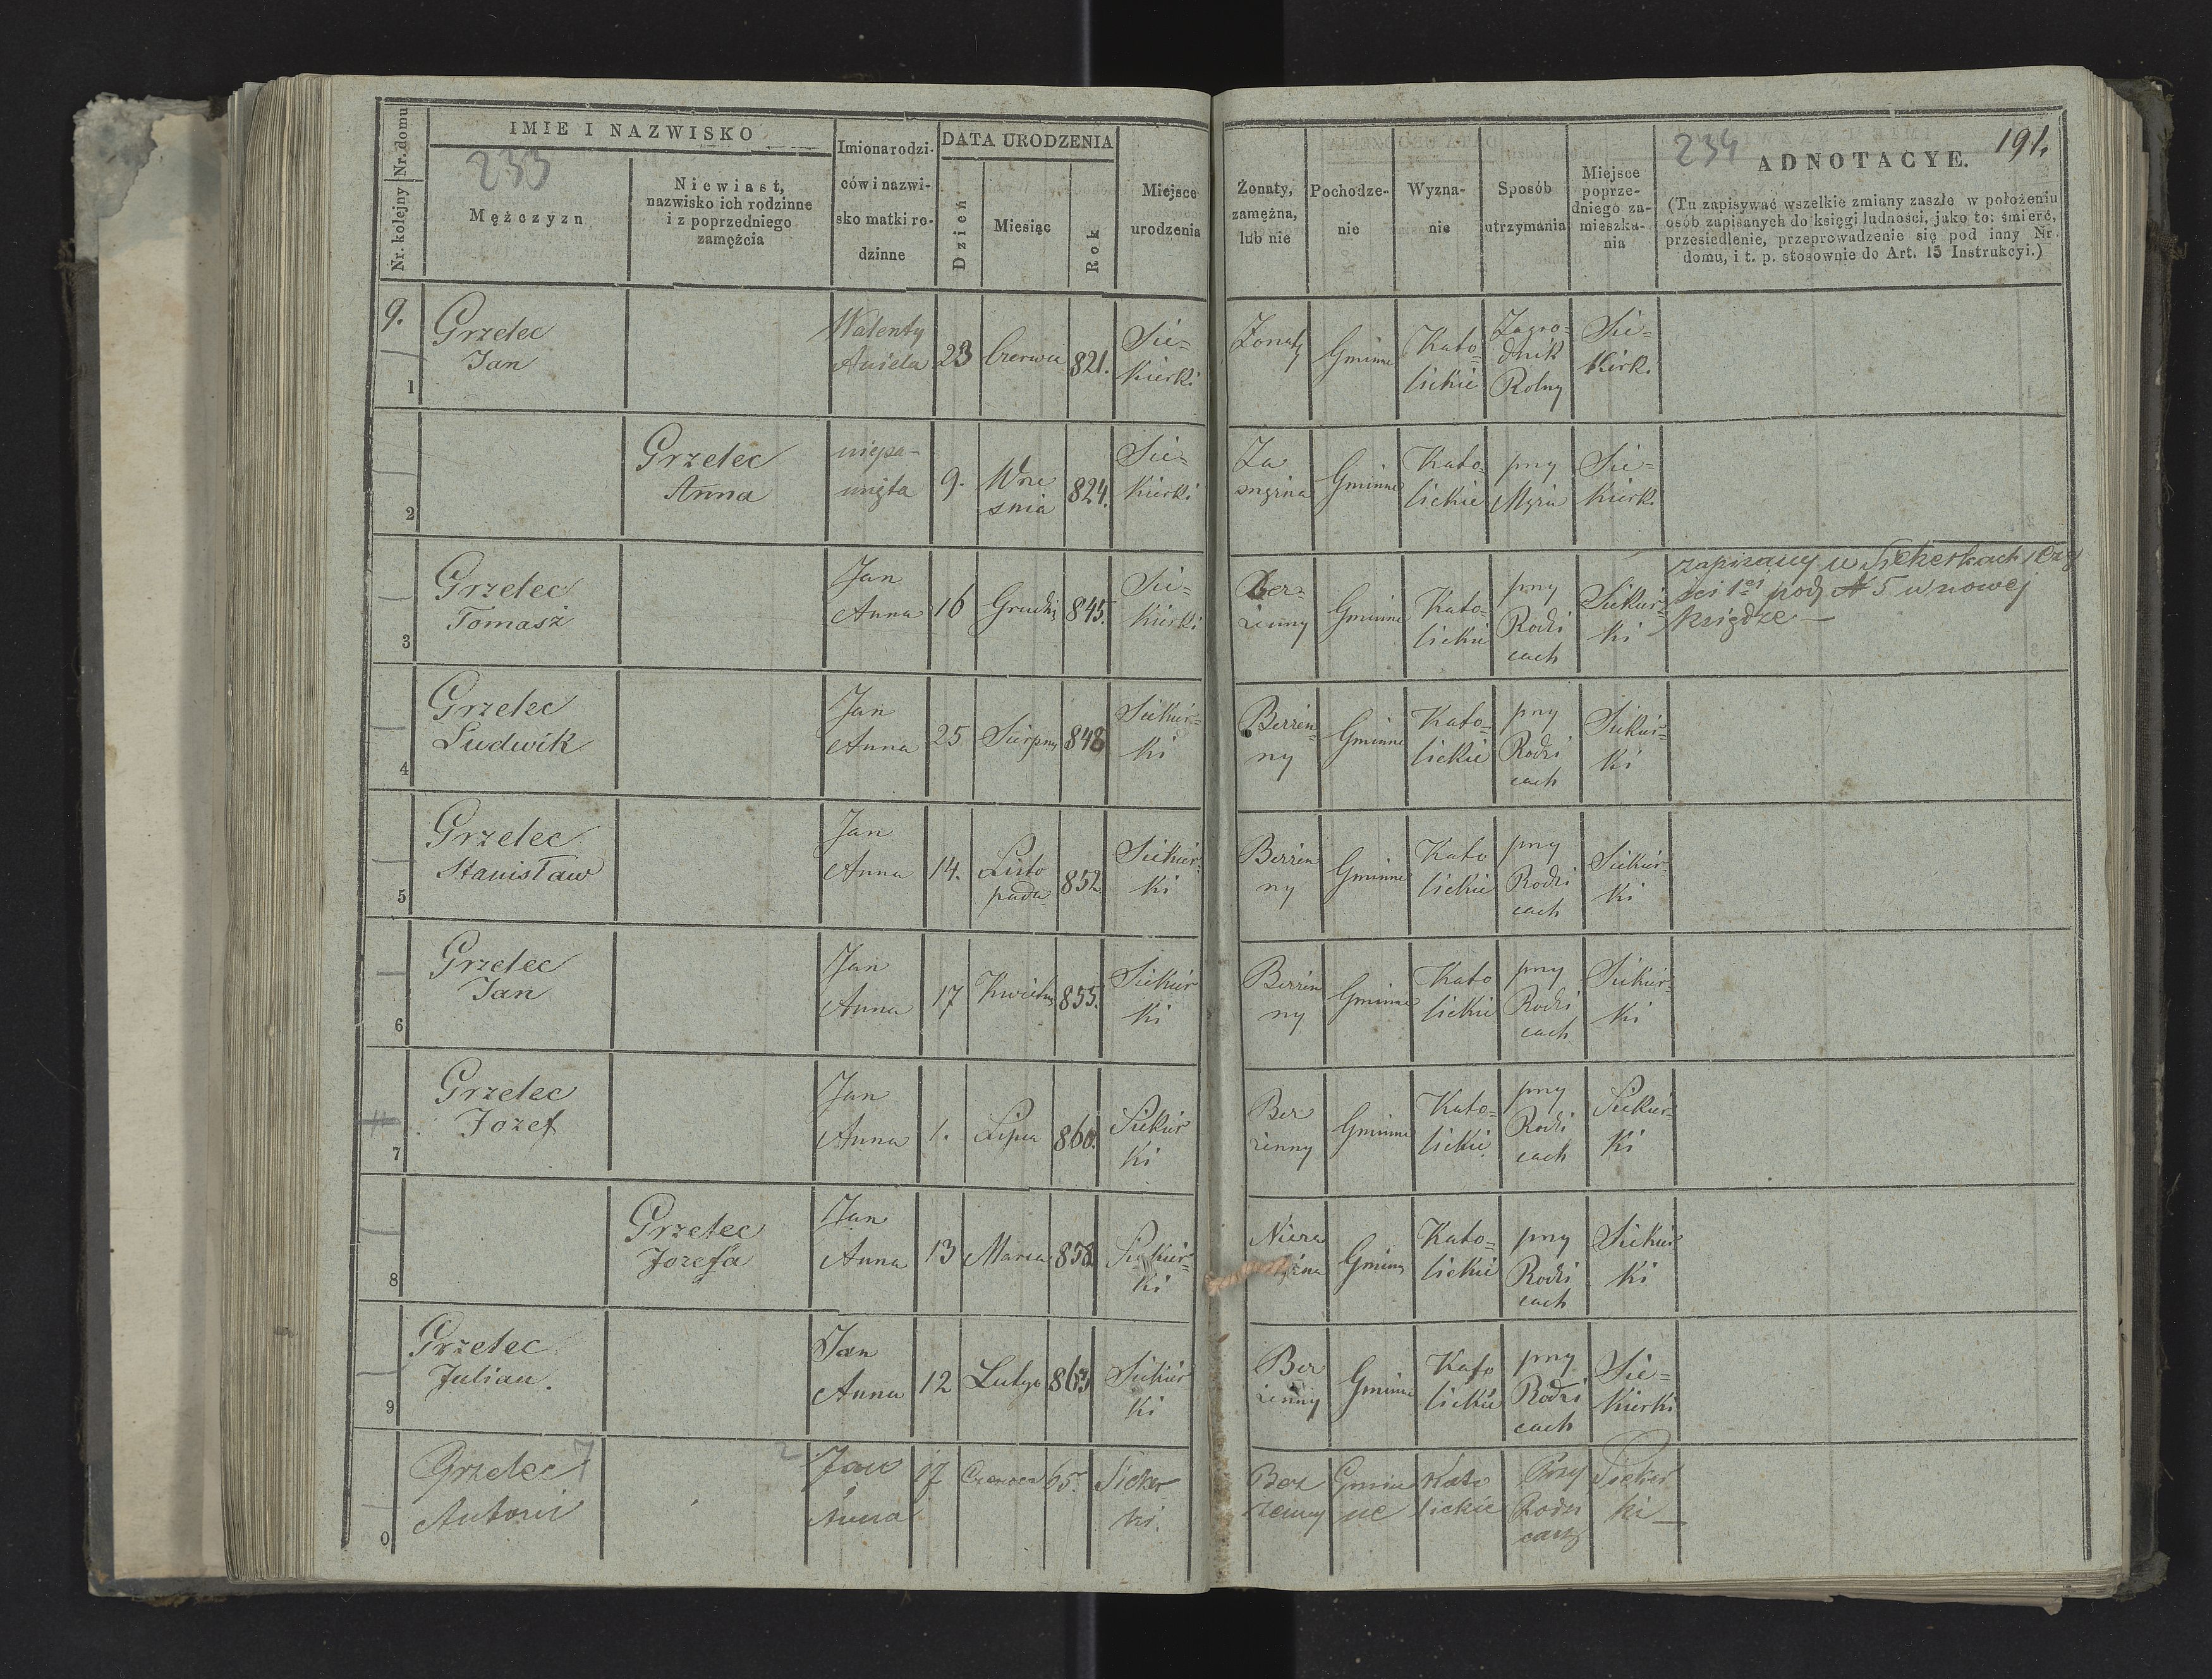 Nr. domu
Nr. kolejny
IMIE I NAZWISKO
233
Mężczyzn
Niewiast,
nazwisko ich rodzinne
i z poprzedniego
zamężcia
Imiona rodzi-
ców i nazwi-
sko matki ro-
dzinne
DATA URODZENIA
Dzień
Miesiąc
Rok
Miejsce
urodzenia
Żonaty,
zamężna,
lub nie
Pochodze-
nie
Wyzna-
nie
Sposób
utrzymania
Miejsce
poprze-
dniego za-
mieszka-
nia
234
191.
ADNOTACYE.
(Tu zapisywać wszelkie zmiany zaszłe w położeniu
osób zapisanych do księgi ludności, jako to: śmierć,
przesiedlenie, przeprowadzenie się pod inny Nr.
domu, i t. p. stosownie do Art. 15 Instrukcyi.)
9.
1
Grzelec
Jan
Walenty
Aniela
23
Czerwca
821.
Sie-
kierki
Żonaty
Gminne
Kato-
lickie
Zagro-
dnik
Rolny
Sie-
kierki
2
Grzelec
Anna
niepa-
mięta
9.
Wrze
snia
824.
Sie-
kierki
Za
mężna
Gminne
Kato-
lickie
przy
Mężu
Sie-
kierki
3
Grzelec
Tomasz
Jan
Anna
16
Grudni
845.
Sie-
kierki
Bez-
żenny
Gminne
Kato-
lickie
przy
Rodzi
cach
Siekier-
ki
zapisany w Siekerkach Czę
sci 1ej pod N 5 w nowej
księdze —
4
Grzelec
Ludwik
Jan
Anna
25
Sierpny
848
Siekier-
ki
Bezżen-
ny
Gminne
Kato-
lickie
przy
Rodzi
cach
Siekier-
ki
5
Grzelec
Stanisław
Jan
Anna
14.
Listo
pada
852
Siekier-
ki
Bezżen
ny
Gminne
Kato
lickie
przy
Rodzi
cach
Siekier-
ki
6
Grzelec
Jan
Jan
Anna
17
Kwietny
855.
Siekier
ki
Bezżen
ny
Gminne
Kato
lickie
przy
Rodzi
cach
Siekier-
ki
7
Grzelec
Jozef
Jan
Anna
1.
Lipca
860.
Siekier
ki
Bez
żenny
Gminne
Kato-
lickie
przy
Rodzi
cach
Siekier-
ki
8
Grzelec
Jozefa
Jan
Anna
13
Marca
858
Siekier-
ki
Nieza
mężna
Gminny
Kato-
lickie
przy
Rodzi
cach
Siekier
ki
9
Grzelec
Julian.
Jan
Anna
12
Lutego
863
Siekier
ki
Bez
żenny
Gminne
Kato
lickie
przy
Rodzi
cach
Sie-
kierki
0
Grzelec
Antoni
Jan
Anna
17
Czerwca
65
Sieker
ki.
Bez
żenny
Gmin
ne
Kato
lickie
Przy
Rodzi
cach
Sieker
ki —